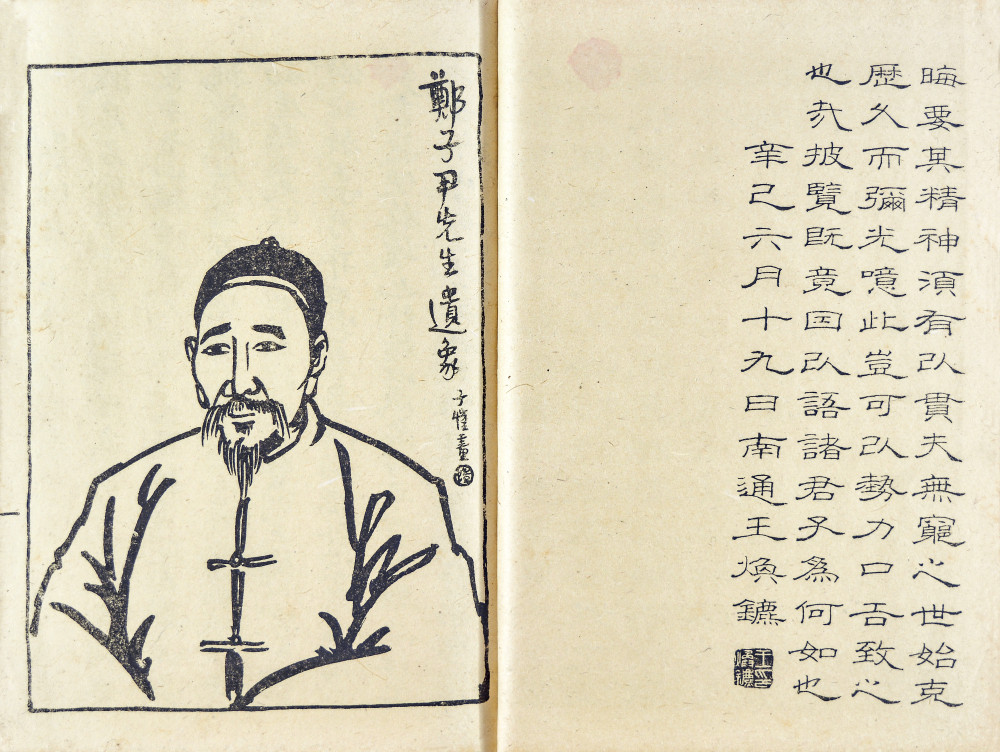 晦要其精神須有以貫夫無窮之世始克
歷久而彌光噫此豈可以勢力口舌致之
也哉披覽既竟因以語諸君子爲何如也
辛巳六月十九日南通王煥鑣
王印煥鑣
鄭子尹先生遺象
子愷畫